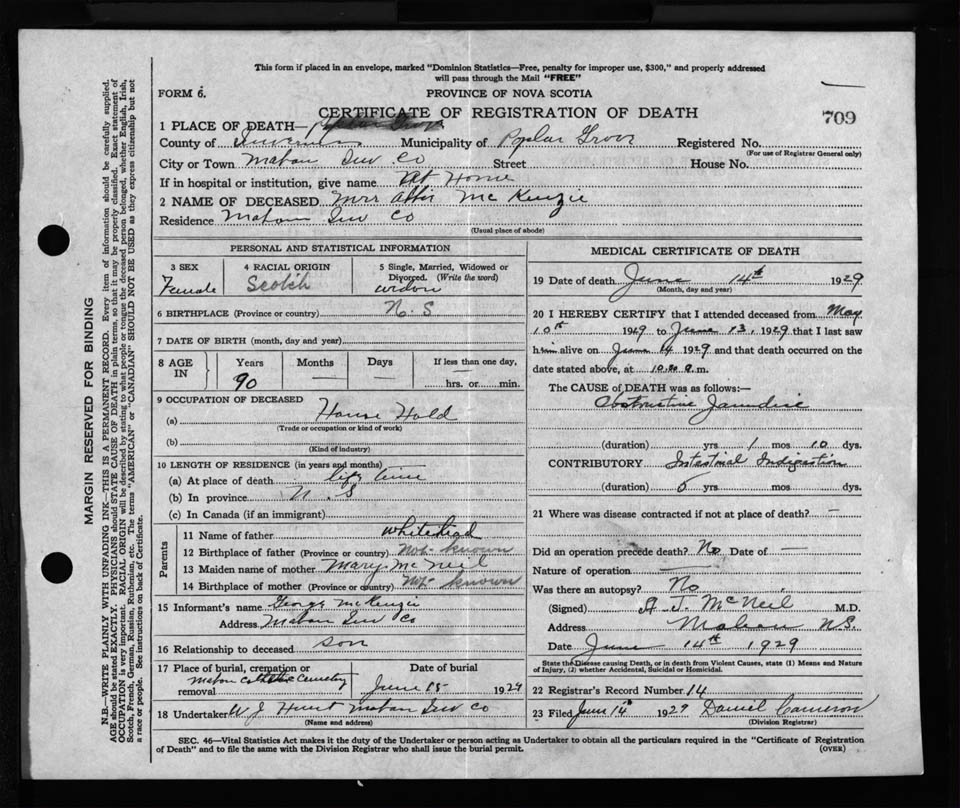 This form if placed in an envelope, marked "Dominion Statistics—Free, penalty for improper use, $300," and properly addressed
will pass through the Mail "FREE"
FORM 6.
PROVINCE OF NOVA SCOTIA
CERTIFICATE OF REGISTRATION OF DEATH
709
1 PLACE OF DEATH— Poplar Grove
County of Inverness Municipality of Poplar Grove Registered No.
(For use of Registrar General only)
City or Town Mabou Inv Co Street House No.
If in hospital or institution, give name At Home
2 NAME OF DECEASED Mrs McKenzie
Residence Mabou Inv Co
(Usual place of abode)
PERSONAL AND STATISTICAL INFORMATION
3 SEX Female
4 RACIAL ORIGIN Scotch
5 Single, Married, Widowed or Divorced. (Write the word) widow
6 BIRTHPLACE (Province or country) N. S
7 DATE OF BIRTH (month, day and year)
8 AGE IN Years 90 Months — Days — If less than one day, — hrs. or min.
9 OCCUPATION OF DECEASED
(a) House Hold
(Trade or occupation or kind of work)
(b)
(Kind of industry)
10 LENGTH OF RESIDENCE (in years and months)
(a) At place of death life time
(b) In province N. S
(c) In Canada (if an immigrant)
Parents
11 Name of father Whitehead
12 Birthplace of father (Province or country) Not known
13 Maiden name of mother Mary McNeil
14 Birthplace of mother (Province or country) Not known
15 Informant's name George McKenzie
Address Mabou Inv Co
16 Relationship to deceased son
17 Place of burial, cremation or removal Mabou Catholic Cemetery
Date of burial June 15 1929
18 Undertaker W J Hunt Mabou Inv Co
(Name and address)
MEDICAL CERTIFICATE OF DEATH
19 Date of death June 14th 1929
(Month, day and year)
20 I HEREBY CERTIFY that I attended deceased from May
10th 1929 to June 13, 1929 that I last saw
him alive on June 14 1929 and that death occurred on the
date stated above, at 10.20 a.m.
The CAUSE of DEATH was as follows:—
Obstructive Jaundice
(duration) yrs 1 mos 10 dys.
CONTRIBUTORY Intestinal Indigestion
(duration) 5 yrs mos dys.
21 Where was disease contracted if not at place of death? —
Did an operation precede death? No Date of —
Nature of operation —
Was there an autopsy? No
(Signed) A. J. McNeil M.D.
Address Mabou N.S.
Date June 14th 1929
State the Disease causing Death, or in death from Violent Causes, state (1) Means and Nature
of Injury, (2) whether Accidental, Suicidal or Homicidal.
22 Registrar's Record Number 14
23 Filed June 14 1929 Daniel Cameron
(Division Registrar)
SEC. 46—Vital Statistics Act makes it the duty of the Undertaker or person acting as Undertaker to obtain all the particulars required in the "Certificate of Registration
of Death" and to file the same with the Division Registrar who shall issue the burial permit.
(OVER)
MARGIN RESERVED FOR BINDING
N.B.—WRITE PLAINLY WITH UNFADING INK—THIS IS A PERMANENT RECORD. Every item of information should be carefully supplied.
AGE should be stated EXACTLY. PHYSICIANS should STATE CAUSE OF DEATH in plain terms, so that it may be properly classified. Exact statement of
OCCUPATION is very important. RACIAL ORIGIN will be described by stating to what people or tongue the deceased person belonged, whether English, Irish,
Scotch, French, German, Russian, Ruthenian, etc. The terms "AMERICAN" or "CANADIAN" SHOULD NOT BE USED as they express citizenship but not
a race or people. See instructions on back of Certificate.